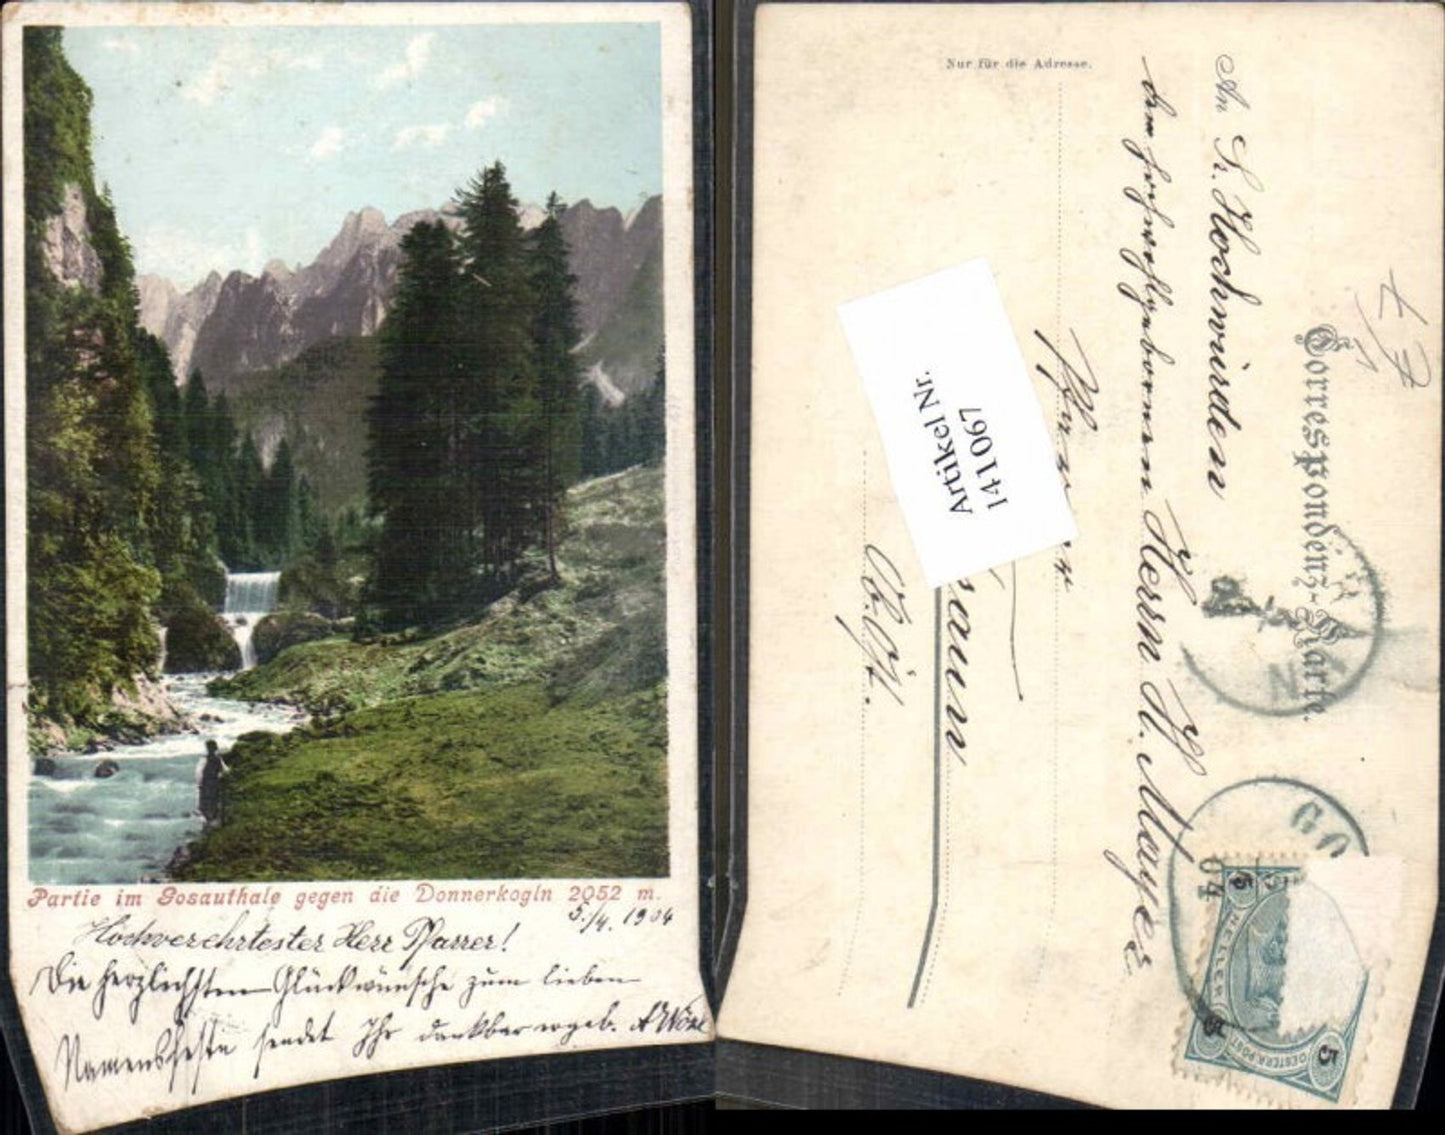 Partie im Gosauthale gegen die Donnerkogln 2052 m.
5./4. 1904
Hochverehrtester Herr Pfarrer!
Die herzlichsten Glückwünsche zum lieben
Namensfeste sendet Ihr dankbar ergeb.
Correspondenz-Karte.
An Sr. Hochwürden
dem hochwohlgebornen Herrn H. Mayer
Pfarrer
Nur für die Adresse.
Artikel Nr.
141067
GO
04
5
5
5
HELLER
OESTERR.POST